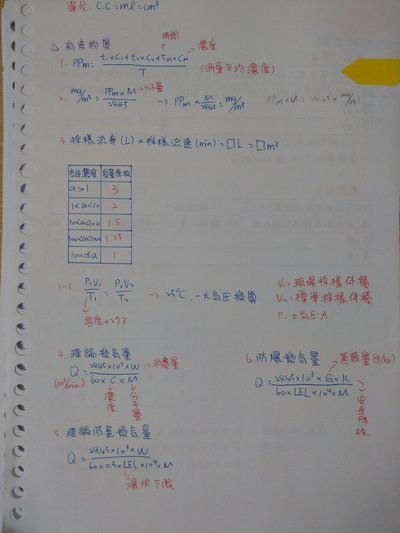 單位: C.C = ml = cm³
△ 有害物質
時間
濃度
1. PPm = t₁×C₁+t₂×C₂+tₙ×Cₙ / T (時量平均濃度)
2. mg/m³ = PPm×M / 24.45 → PPm × M/24.45 = mg/m³ PPm×M = 24.45 × mg/m³
分子量
3. 採樣流率(L) × 採樣流速(min) = □L = □m³
容許濃度 變量係數
a>1 3
1<a<10 2
10<a<100 1.5
100<a<1000 1.25
1000≤a 1
1-1 P₁V₁/T₁ = P₂V₂/T₂ → 25°C, 一大氣壓換算
溫度+273
V₁=現場採樣体積
V₂=標準採樣体積
P=大氣壓力
4. 理論換氣量
Q = 24.45×10³×W / 60×C×M
消費量
(m³/min)
濃度
分子量
6. 防爆換氣量
蒸發量(g/hr)
Q = 24.45×10³×G×K / 60×LEL×10⁴×M
安全係數
5. 理論防爆換氣量
Q = 24.45×10³×W / 60×0.3×LEL×10⁴×M
爆炸下限